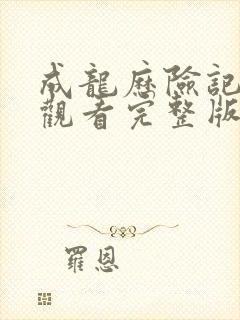 成龍歷險記
觀看完整版
羅恩